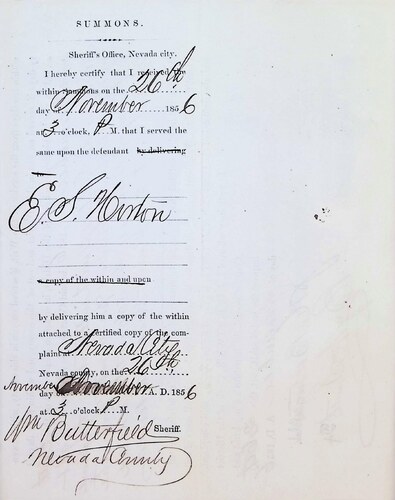 SUMMONS.
Sheriff's Office, Nevada city.
I hereby certify that I received the
within Summons on the 26th
day of November 1856
at 3 o'clock, P. M. that I served the
same upon the defendant by delivering
to
E. S. Horton
a copy of the within and upon
by delivering him a copy of the within
attached to a certified copy of the com-
plaint at Nevada City
Nevada county, on the 26th
November day of November A. D. 1856
at 3 o'clock P M.
Wm Butterfield Sheriff.
Nevada County